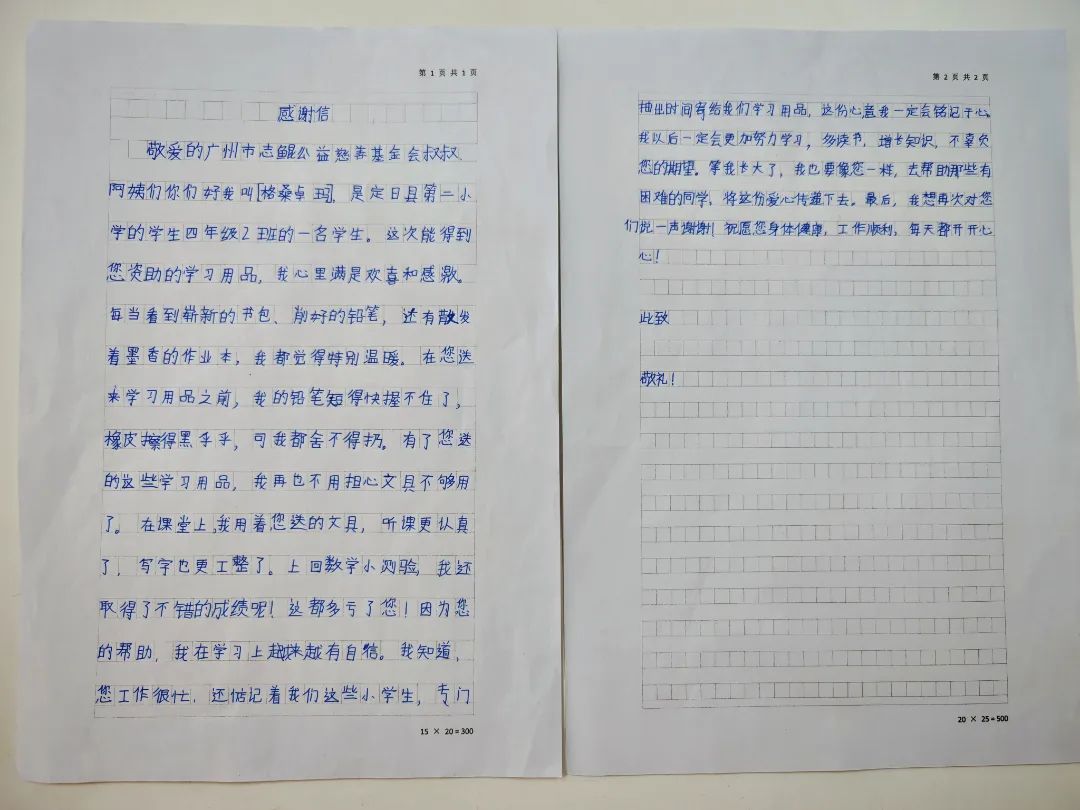 第 1 页 共 1 页
感谢信
敬爱的广州市志鲲公益慈善基金会叔叔、
阿姨们你们好我叫[格桑卓玛],是定日县第二小
学的学生四年级2班的一名学生。这次能得到
您资助的学习用品,我心里满是欢喜和感激。
每当看到崭新的书包、削好的铅笔,还有散发
着墨香的作业本,我都觉得特别温暖。在您送
来学习用品之前,我的铅笔短得快握不住了,
橡皮擦得黑乎乎,可我都舍不得扔。有了您送
的这些学习用品,我再也不用担心文具不够用
了。在课堂上,我用着您送的文具,听课更认真
了,写字也更工整了。上回数学小测验,我还
取得了不错的成绩呢!这都多亏了您!因为您
的帮助,我在学习上越来越有自信。我知道,
您工作很忙,还惦记着我们这些小学生,专门
15 × 20=300
第 2 页 共 2 页
抽出时间寄给我们学习用品,这份心意我一定会铭记于心。
我以后一定会更加努力学习,多读书,增长知识,不辜负
您的期望。等我长大了,我也要像您一样,去帮助那些有
困难的同学,将这份爱心传递下去。最后,我想再次对您
们说一声谢谢!祝愿您身体健康,工作顺利,每天都开开心
心!
此致
敬礼!
20 × 25=500